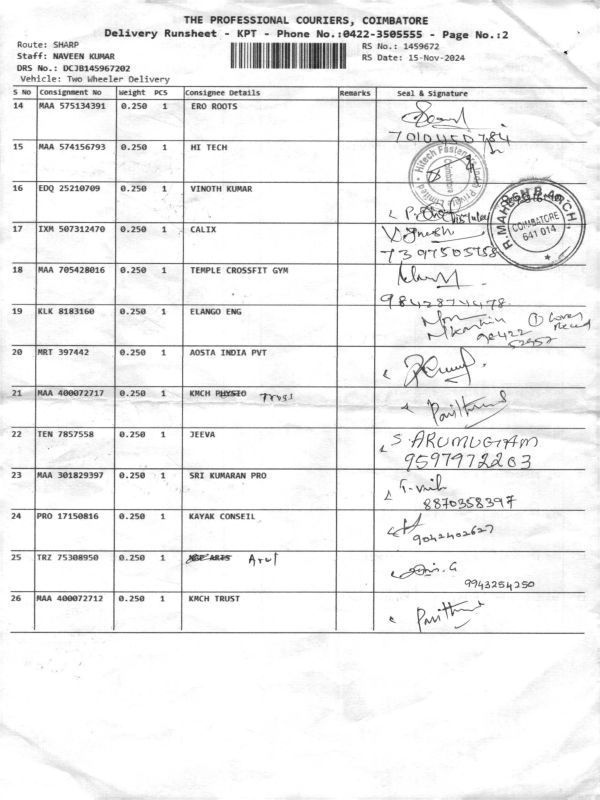 THE PROFESSIONAL COURIERS, COIMBATORE
Delivery Runsheet - KPT - Phone No.:0422-3505555 - Page No.:2
Route: SHARP
Staff: NAVEEN KUMAR
DRS No.: DCJB145967202
Vehicle: Two Wheeler Delivery
RS No.: 1459672
RS Date: 15-Nov-2024
S No Consignment No Weight PCS Consignee Details Remarks Seal & Signature
14 MAA 575134391 0.250 1 ERO ROOTS
7010450784
15 MAA 574156793 0.250 1 HI TECH
Hitech Fastener India Private Limited
Coimbatore
16 EDQ 25210709 0.250 1 VINOTH KUMAR
R.MAHESH B.ARCH.
COIMBATORE
641 014
17 IXM 507312470 0.250 1 CALIX
Vignesh
7397505758
18 MAA 705428016 0.250 1 TEMPLE CROSSFIT GYM
9842874478
19 KLK 8183160 0.250 1 ELANGO ENG
1 Cover
20 MRT 397442 0.250 1 AOSTA INDIA PVT
21 MAA 400072717 0.250 1 KMCH PHYSIO Trust
22 TEN 7857558 0.250 1 JEEVA
S ARUMUGAM
9597972203
23 MAA 301829397 0.250 1 SRI KUMARAN PRO
8870358397
24 PRO 17150816 0.250 1 KAYAK CONSEIL
9042402627
25 TRZ 75308950 0.250 1 Arut
9943254250
26 MAA 400072712 0.250 1 KMCH TRUST